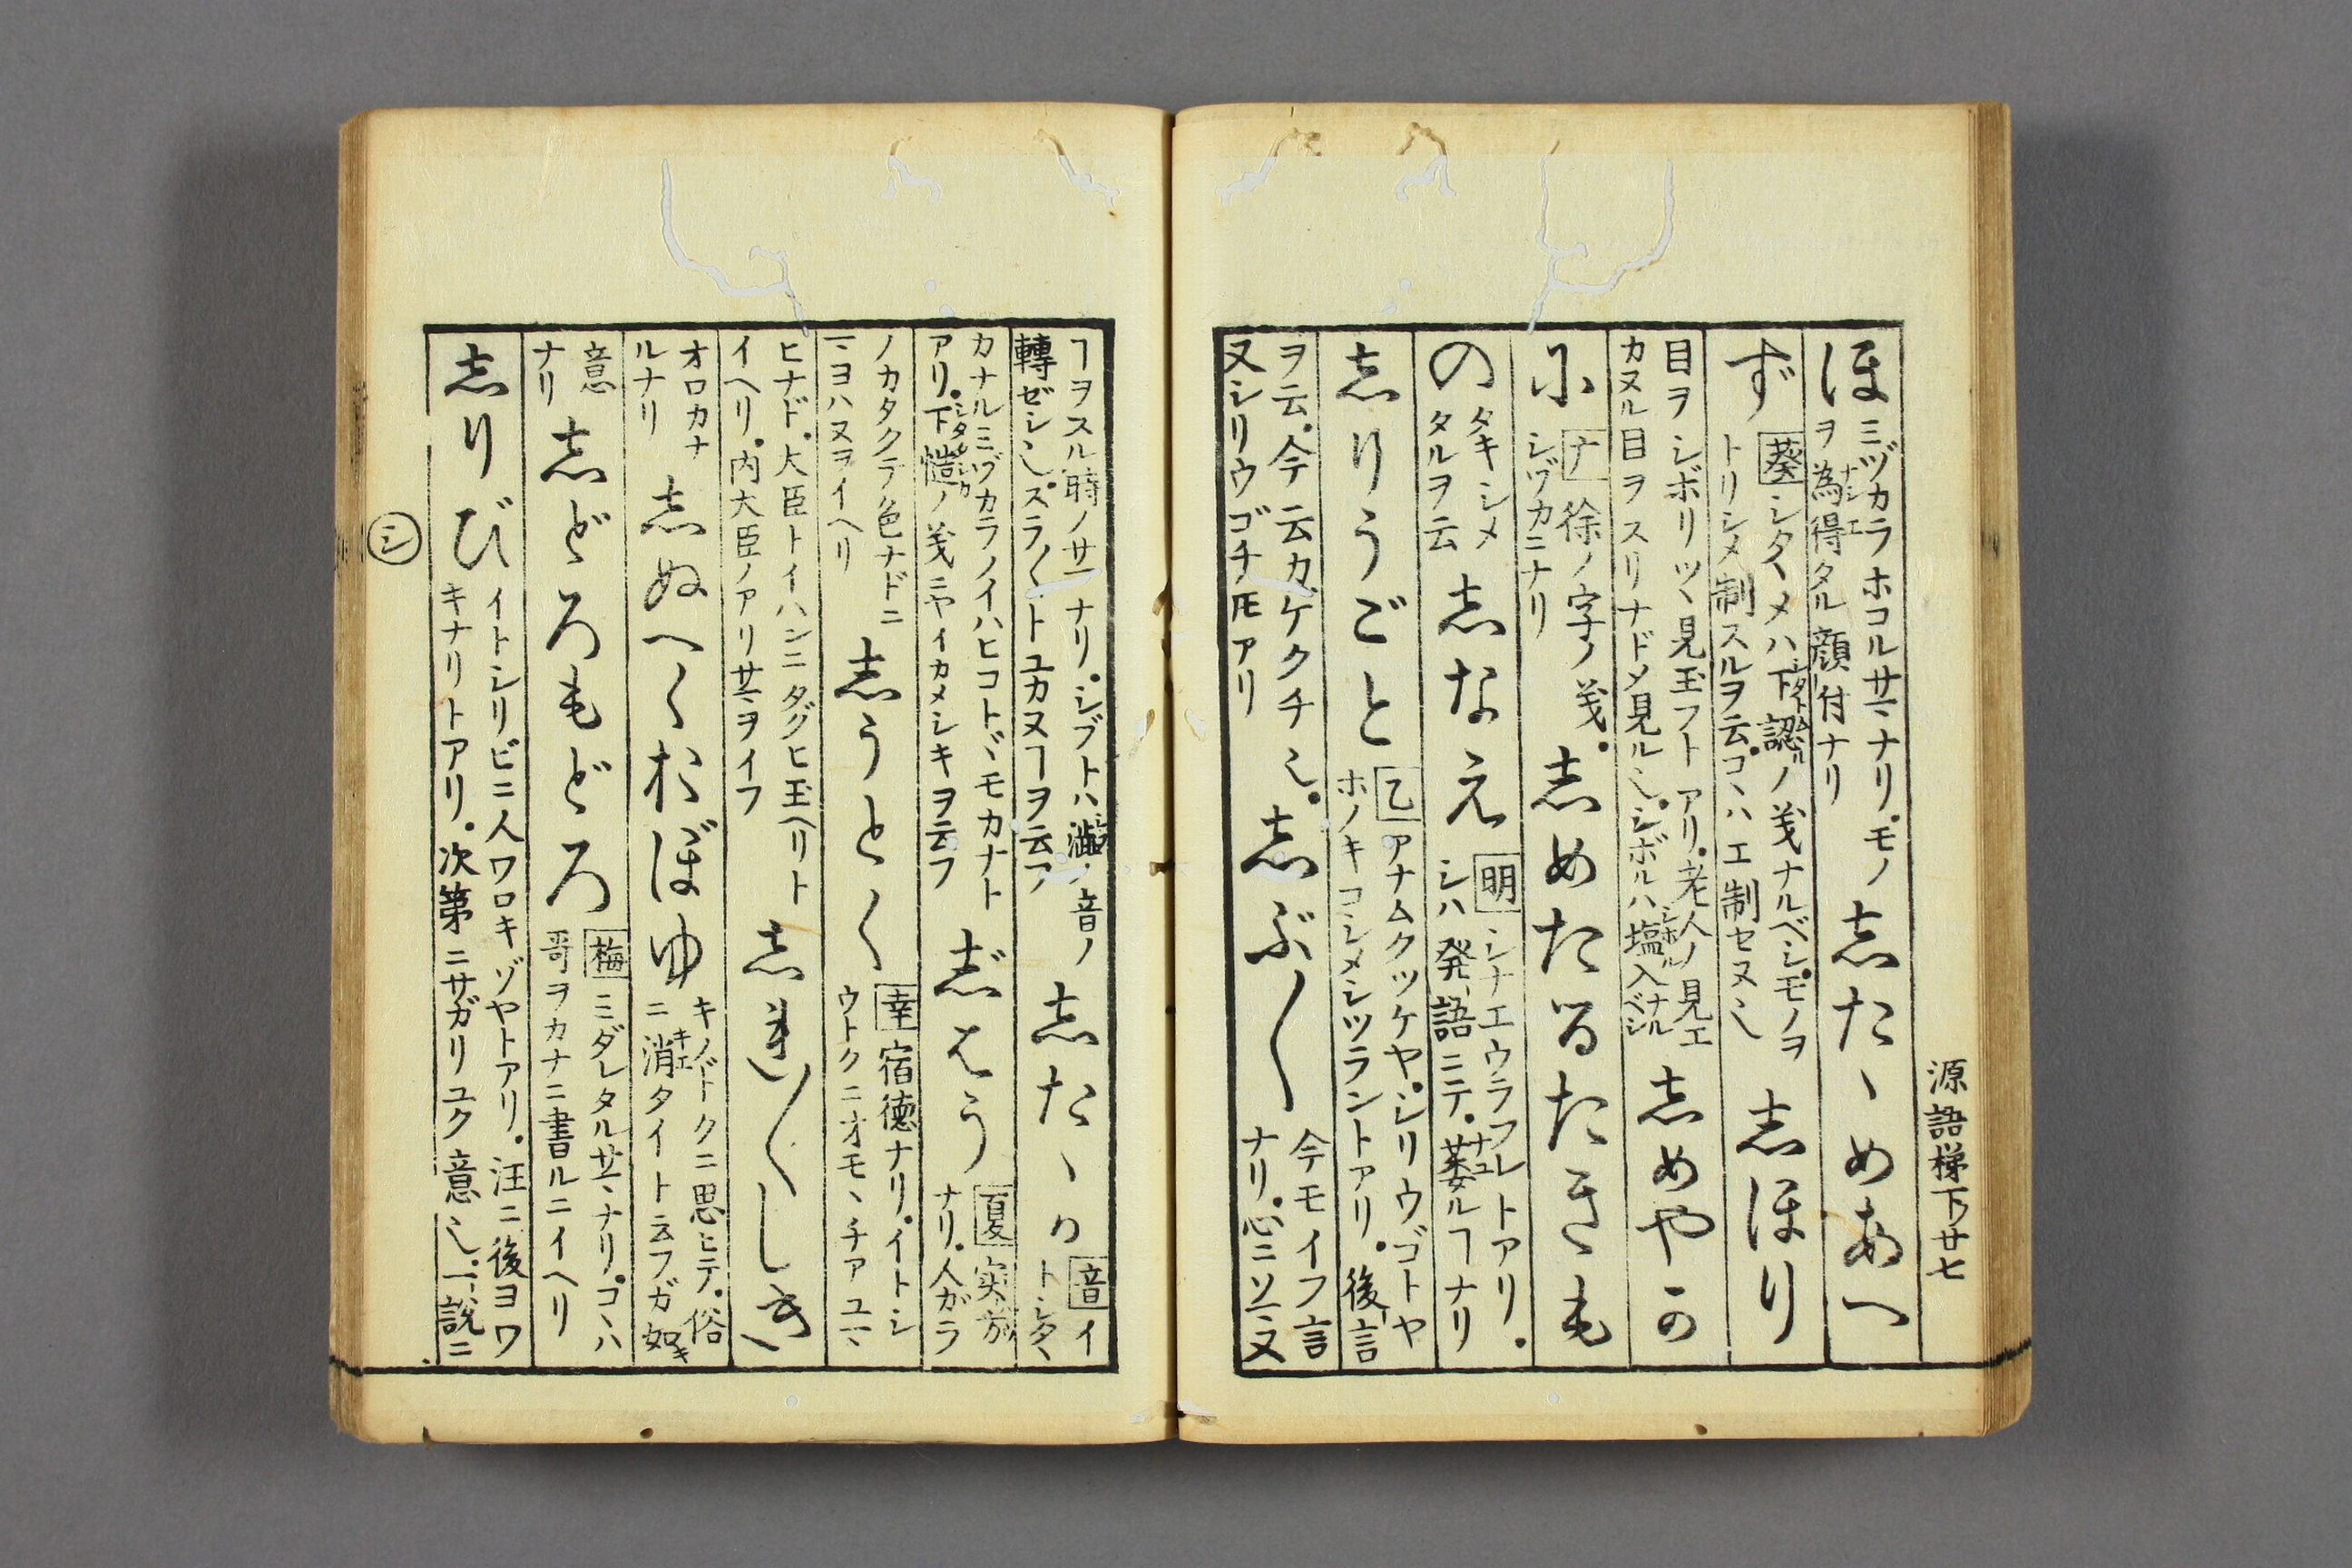 源語梯下 廿七
ほ ミヅカラホコルサマナリ。モノ
ヲ為得タル顔付ナリ
志たゝめあへ
ず 葵 シタヽメハ下認ノ義ナルベシ。モノヲ
トリシメ制スルヲ云。コヽハエ制セヌ也
志ほり
目ヲシボリツヽ見玉フトアリ。老人ノ見エ
カヌル目ヲスリナドメ見ル也。シボルハ塩入ナルベシ
志めやか
に ナ 徐ノ字ノ義。
シヅカニナリ
志めたるたきも
の タキシメ
タルヲ云
志なえ 明 シナエウラフレトアリ。
シハ発語ニテ。萎ルヿナリ
志りうごと 乙 アナムクツケヤ。シリウゴトヤ
ホノキコシメシツラントアリ。後言
ヲ云。今云カケクチ也。
又シリウゴチ𪜈アリ
志ぶ〳〵 今モイフ言
ナリ。心ニソマヌ
ヿヲスル時ノサマナリ。シブトハ澁ノ音ノ
轉ゼシ也。スラ〳〵トユカヌヿヲ云フ
志たゝか 音 イ
トシタヽ
カナルミヅカラノイハヒコトヾモカナト
アリ。下愷ノ義ニヤイカメシキヲ云フ
志はう 夏 実方
ナリ。人ガラ
ノカタクテ色ナドニ
マヨハヌヲイヘリ
志うとく 幸 宿徳ナリ。イトシ
ウトクニオモヽチアユマ
ヒナド。大臣トイハンニタグヒ玉ヘリト
イヘリ。内大臣ノアリサマヲイフ
志れ〳〵しき
オロカナ
ルナリ
志ぬへくおぼゆ キノドクニ思ヒテ。俗
ニ消タイト云フガ如キ
意
ナリ
志どろもどろ 梅 ミダレタルサマナリ。コヽハ
哥ヲカナニ書ルニイヘリ
志りび イトシリビニ人ワロキゾヤトアリ。注ニ後ヨワ
キナリトアリ。次第ニサガリユク意也。一説ニ
シ